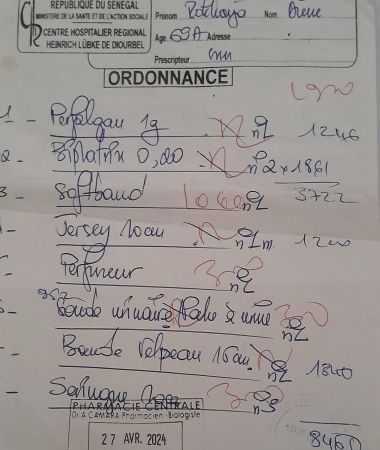 REPUBLIQUE DU SENEGAL
MINISTERE DE LA SANTE ET DE L'ACTION SOCIALE
CENTRE HOSPITALIER REGIONAL
HEINRICH LÜBKE DE DIOURBEL
Prénom Nom Diene
Age 69A Adresse
Prescripteur
ORDONNANCE
1 - Perfalgan 1g n°1 1246
2 - 0,20 n°2 x 1861
3 - Softband n°1 3722
- Jersey 10cm n°1m 1200
- Perfuseur n°1
- Sonde urinaire + Poche à urine n°1
- Bande Velpeau 15cm n°2 1840
- Seringue 10cc n°3
PHARMACIE CENTRALE
Dr A. CAMARA Pharmacien - Biologiste
27 AVR. 2024
8460